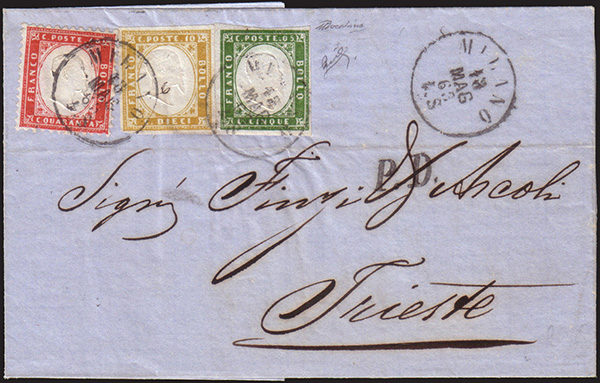 C. POSTE 40
FRANCO
BOLLO
C. QUARANTA
C. POSTE 10
FRANCO
BOLLO
C. DIECI
C. POSTE 05
FRANCO
BOLLO
C. CINQUE
MILANO
MILANO
MILANO
18
MAG
63
4-S
P.D.
Sigri Finzi & Ascoli
Trieste